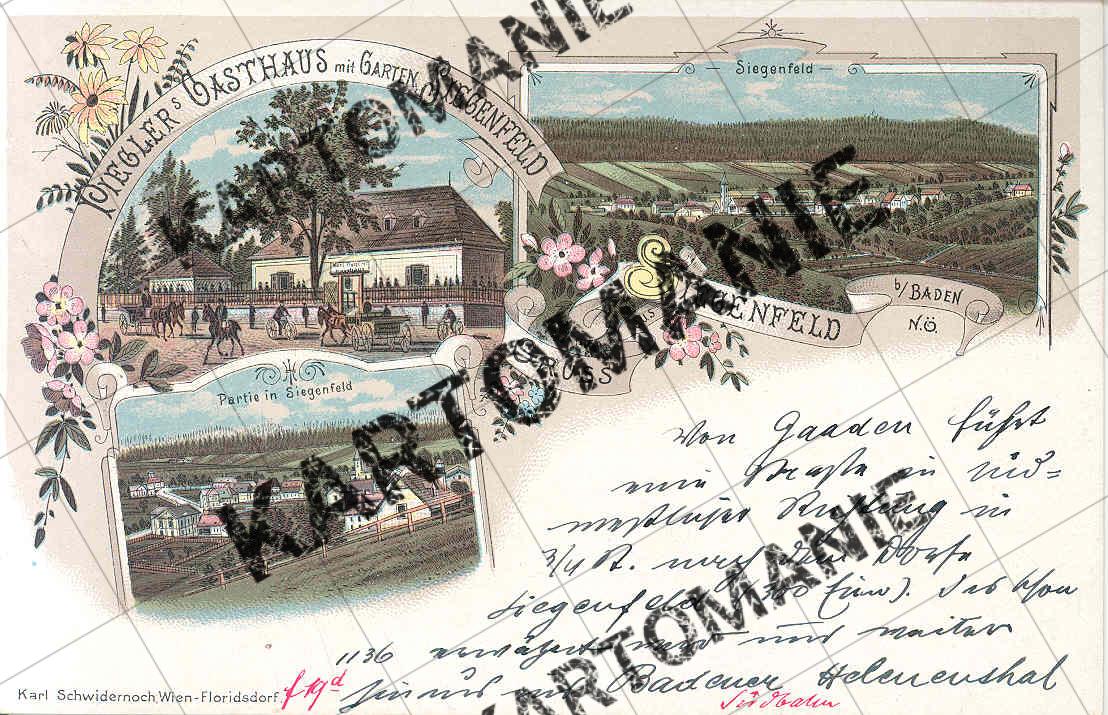 ZIEGLER's GASTHAUS mit GARTEN SIEGENFELD
Siegenfeld
GRUSS AUS SIEGENFELD
b/ BADEN
N.Ö.
Partie in Siegenfeld
Von Gaaden führt
eine Straße in süd-
westlicher Richtung in
3/4 St. nach dem Dorfe
Siegenfeld (300 Einw). Das schon
1136 erwähnt und weiter
hinaus ins Badener Helenenthal
Südbahn
Karl Schwidernoch, Wien-Floridsdorf.
KARTOMANIE
KARTOMANIE
KARTOMANIE
KARTOMANIE